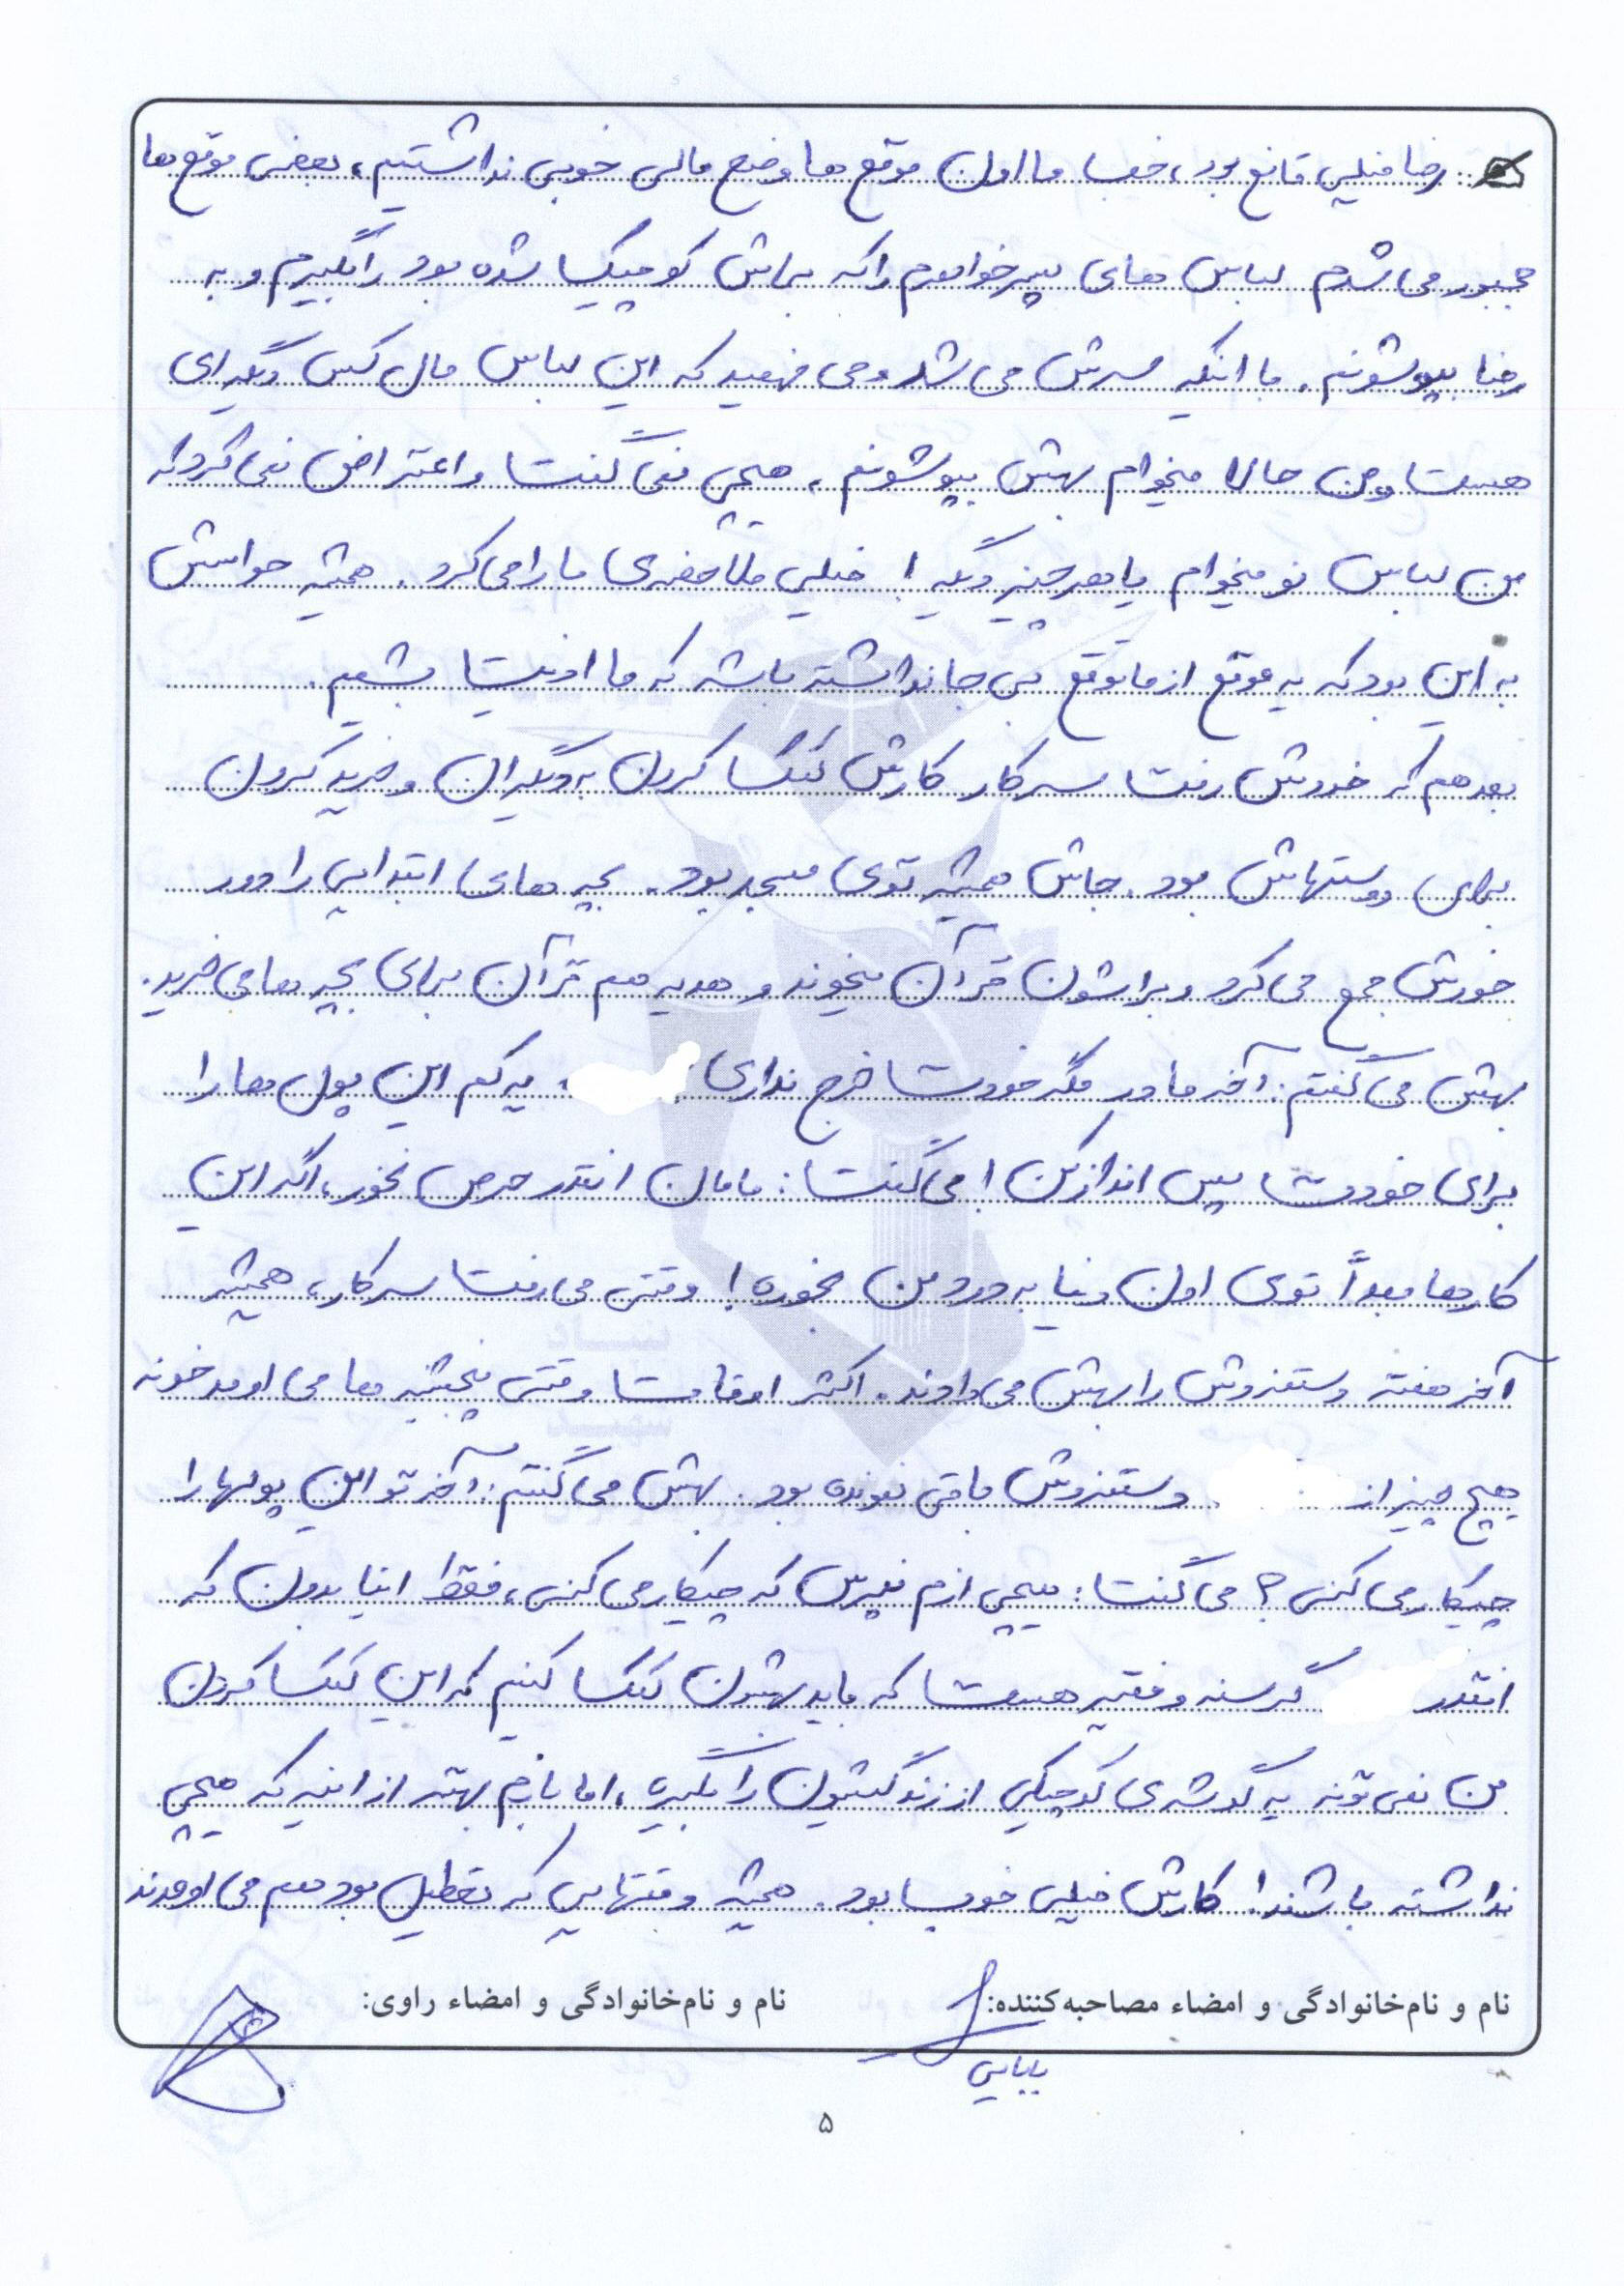 رضا خیلی قانع بود، خب ما اون موقع ها وضع مالی خوبی نداشتیم، بعضی موقع ها
مجبور می شدم لباس های پسرخواهرم را که براش کوچیک شده بود را بگیرم و به
رضا بپوشونم. با اینکه سرش می شد و می فهمید که این لباس مال کس دیگه ای
هست و من حالا میخوام بهش بپوشونم، هیچی نمی گفت و اعتراض نمی کرد که
من لباس نو میخوام یا هر چیز دیگه! خیلی ملاحظه ی ما را می کرد. همیشه حواسش
به این بود که یه موقع از ما توقع بی جا نداشته باشه که ما اذیت بشیم.
بعد هم که خودش رفت سر کار کارش کمک کردن به دیگران و خرید کردن
برای دوستهاش بود. جاش همیشه توی مسجد بود. بچه های ابتدایی را دور
خودش جمع می کرد و براشون قرآن میخوند و هدیه هم قرآن برای بچه ها می خرید.
بهش می گفتم: آخه مادر مگه خودت خرج نداری یه کم این پول ها را
برای خودت پس انداز کن! می گفت: مامان انقدر حرص نخور، اگه این
کارها بعداً توی اون دنیا به درد من بخوره! وقتی می رفت سر کار، همیشه
آخر هفته دستمزدش را بهش می دادند. اکثر اوقات وقتی پنجشنبه ها می اومد خونه
هیچ چیز از دستمزدش باقی نمونده بود. بهش می گفتم: آخه تو این پولها را
چیکار می کنی؟ می گفت: هیچی ازم نپرس که چیکار می کنی، فقط اینا بدون که
انقدر گرسنه و فقیر هست که باید بهشون کمک کنیم که این کمک کردن
من نمی تونه یه گوشه ی کوچیکی از زندگیشون را بگیره، اما بازم بهتر از اینه که هیچی
نداشته باشند! کارش خیلی خوب بود. همیشه وقتهایی که تعطیل بود هم می اومدند
نام و نام‌خانوادگی و امضاء مصاحبه‌کننده: نام و نام‌خانوادگی و امضاء راوی:
بابایی
۵